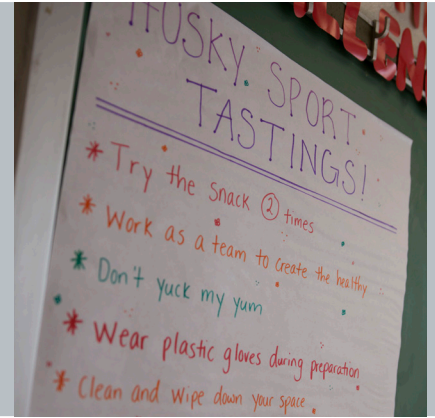 HUSKY SPORT
TASTINGS!
* Try the snack ② times
* Work as a team to create the healthy
* Don't yuck my yum
* Wear plastic gloves during preparation
* Clean and wipe down your space.